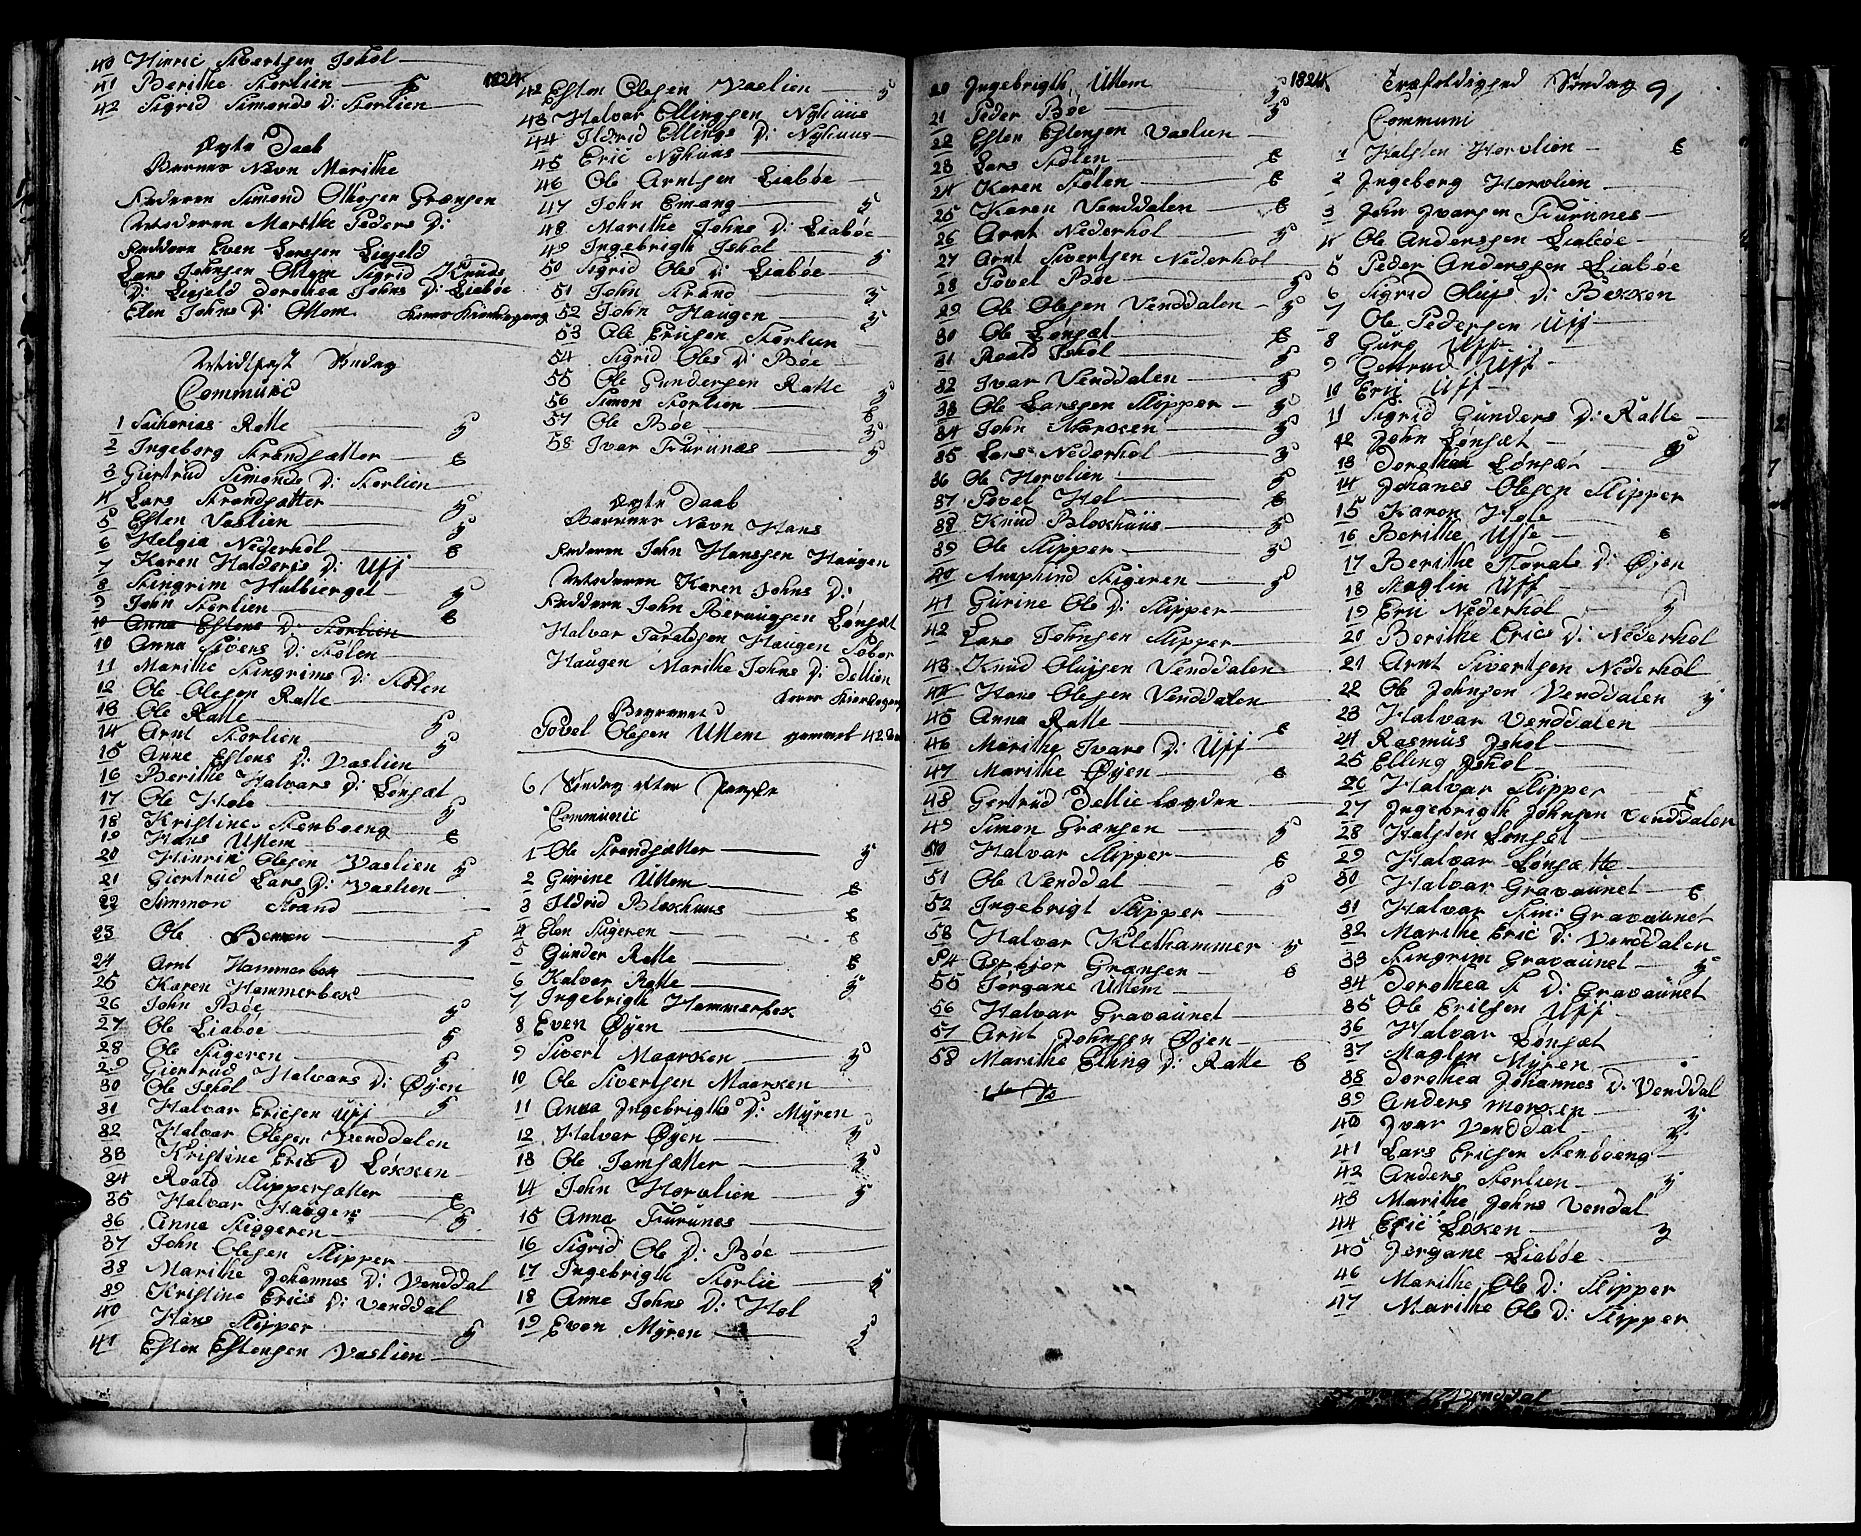 40 Hinric Sivertsen Ishol
41 Berithe Storlien
42 Sigrid Simonds D: Storlien
Ægte Daab
Barnes Navn Marithe
Faderen Simond Grænsen
Moderen Marithe Peders D:
Faddern Even Larsen
Lars Johnsen Ottem Sigrid Knuds
D: Dorothea Johns D: Liabøe
Elen Johns D: Ottem
Midfast Søndag
Communic
1 Sacherias Ratte
2 Ingeborg Strandsætter
3 Giertrud Simonds D: Storlien
4 Lars Strandsætter
5 Esten Vaslien
6 Helgia Nederhol
7 Karen Halders D: Uff
8 Stingrim Hulbierget
9 John Storlien
10 Anna Estens D: Storlien
10 Anna Sivers D: Stølen
11 Marithe Stingrims D: Stølen
12 Ole Olesen Ratte
13 Ole Ratte
14 Arnt Storlien
15 Anne Estens D: Vaslien
16 Berithe Halvars D: Lønsæt
17 Ole Hole
18 Kristine Stenboeng
19 Hans Uttem
20 Hinric Olesen Vaslien
21 Giertrud Lars D: Vaslien
22 Simmon Strand
23 Ole
24 Arnt Hammerbek
25 Karen Hammerbek
26 John Bøe
27 Ole Liabøe
28 Ole Stigeren
29 Giertrud Halvars D: Øyen
30 Ole Ishol
31 Halvar Ericsen Uff
32 Halvar Olesen Venddalen
33 Kristine Eric D Løkken
34 Roald Slippersætter
35 Halvar Haugen
36 Anne Stiggeren
37 John Olesen Slipper
38 Marithe Johannes D: Venddal
39 Kristine Erics D: Venddal
40 Hans Slipper
41 Esten Estensen Vaslien
1824
42 Esten Olesen Vaslien
43 Halvar Ellingsen Nyhuus
44 Ildrid Ellings D: Nyhuus
45 Eric Nyhuus
46 Ole Arntsen Liabøe
47 John Emang
48 Marithe Johns D: Liabøe
49 Ingebrigth Ishol
50 Sigrid Oles D: Liabøe
51 John Strand
52 John Haugen
53 Ole Ericsen Storlien
54 Sigrid Oles D: Bøe
55 Ole Gundersen Ratte
56 Simon Storlien
57 Ole Bøe
58 Ivar Furunæs
Ægte Daab
Barnes Navn Hans
Faderen John Hanssen Haugen
Moderen Karen Johns D:
Faddern John Lønsæt
Halvar Taraldsen Haugen
Haugen Marithe Johns D: Dellien
Begravet
Povel Olesen Uttem gammel 42
6 Søndag efter Paaske
Communic
1 Ole Strandsætter
2 Gurine Uttem
3 Ildrid Blokhuus
4 Elen Stigeren
5 Gunder Ratte
6 Halvar Ratte
7 Ingebrigth Hammerbek
8 Even Øyen
9 Sivert Maarken
10 Ole Sivertsen Maarken
11 Anna Ingebrigths D: Myren
12 Halvar Øyen
13 Ole
14 John Horvlien
15 Anna Furunes
16 Sigrid Ole D: Bøe
17 Ingebrigth Storlie
18 Anne Johns D: Hol
19 Even Myren
20 Ingebrigth Uttem
21 Peder Bøe
22 Esten Estensen Vaslien
23 Lars Stølen
24 Karen Stølen
25 Karen Venddalen
26 Arnt Nederhol
27 Arnt Sivertsen Nederhol
28 Povel Bøe
29 Ole Olesen Venddalen
30 Ole Lønsæt
31 Roald Ishol
32 Ivar Venddalen
33 Ole Larssen Slipper
34 John Marken
35 Lars Nederhol
36 Ole Horvlien
37 Povel Hol
38 Knud Blokhuus
39 Ole Slipper
40 Amphind Stigeren
41 Gurine Ole D: Slipper
42 Lars Johnsen Slipper
43 Knud Olufsen Venddalen
44 Hans Olesen Venddalen
45 Anna Ratte
46 Marithe Ivars D: Uff
47 Marithe Øyen
48 Gertrud Dellie lægden
49 Simon Grænsen
50 Halvar Slipper
51 Ole Venddal
52 Ingebrigt Slipper
53 Halvar Klethammer
54 Grænsen
55 Jørgane Uttem
56 Halvar Gravaunet
57 Arnt Johnsen Øyen
58 Marithe Elling D: Ratte
1824
Træfoldighed Søndag
91
Communi
1 Halsten Horvlien
2 Ingeborg Horvlien
3 John Ivarsen Furunnes
4 Ole Anderssen Liabøe
5 Peder Anderssen Liabøe
6 Sigrid Olufs D: Bekken
7 Ole Pedersen Uff
8 Guro Uff
9 Gettrud Uff
10 Eric Uff
11 Sigrid Gunders D: Ratte
12 John Lønsæt
13 Dorothea Lønsæt
14 Johanes Olesen Slipper
15 Karen Hole
16 Berithe Uffe
17 Berithe Torals D: Øyen
18 Maglin Uff
19 Eric Nederhol
20 Berithe Erics D: Nederhol
21 Arnt Sivertsen Nederhol
22 Ole Johnsen Venddalen
23 Halvar Venddalen
24 Rasmus Ishol
25 Elling Ishol
26 Halvar Slipper
27 Ingebrigth Johnsen Venddalen
28 Halsten Lønsæt
29 Halvar Lønsætte
30 Halvar Gravaunet
31 Halvar Stin: Gravaunet
32 Marithe Eric D: Venddalen
33 Stingrim Gravaunet
34 Dorothea St D: Gravaunet
35 Ole Ericsen Uff
36 Halvar Lønsæt
37 Maglin Myren
38 Dorothea Johannes D: Venddal
39 Anders morken
40 Ivar Venddal
41 Lars Ericsen Stenboeng
42 Anders Storlien
43 Marithe Johns Vendal
44 Eric Løken
45 Jørgane Liabøe
46 Marithe Ole D: Slipper
47 Marithe Ole D: Slipper